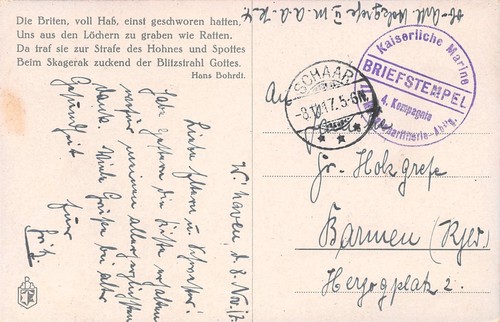 Die Briten, voll Haß, einst geschworen hatten,
Uns aus den Löchern zu graben wie Ratten.
Da traf sie zur Strafe des Hohnes und Spottes
Beim Skagerak zuckend der Blitzstrahl Gottes.
Hans Bohrdt.
W'haven, d. 8. Nov. 17.
Liebe Eltern u. Schwester!
Habe gestern die Kiste erhalten
meinen allerherzlichsten
Viele Grüße bei alter
Gesundheit
Euer
Fritz
SCHAAR
-8.11.17.5-6N.
Kaiserliche Marine
BRIEFSTEMPEL
4. Kompagnie
An
Holzgrefe
Barmen (Rhld.)
Herzogplatz 2.